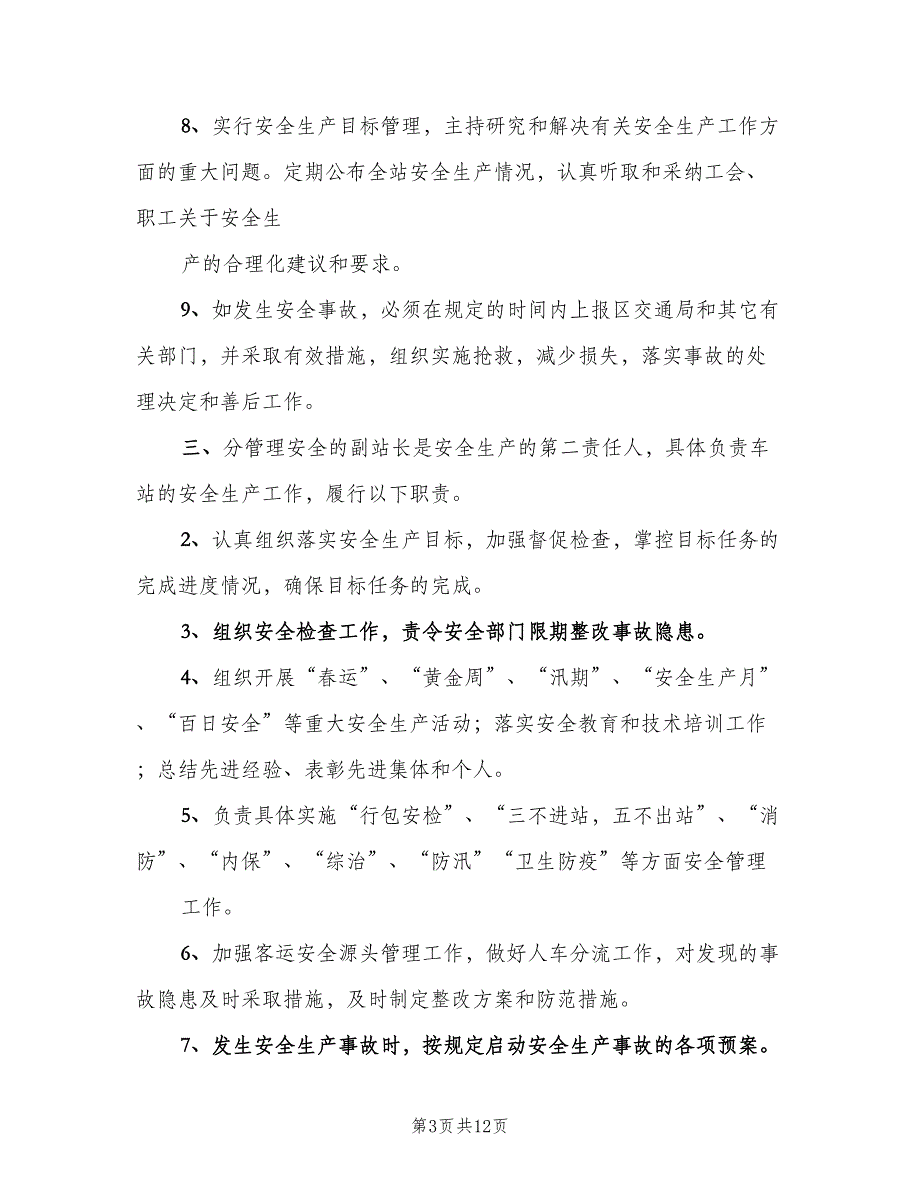 8、实行安全生产目标管理，主持研究和解决有关安全生产工作方
面的重大问题。定期公布全站安全生产情况，认真听取和采纳工会、
职工关于安全生
产的合理化建议和要求。
9、如发生安全事故，必须在规定的时间内上报区交通局和其它有
关部门，并采取有效措施，组织实施抢救，减少损失，落实事故的处
理决定和善后工作。
三、分管理安全的副站长是安全生产的第二责任人，具体负责车
站的安全生产工作，履行以下职责。
2、认真组织落实安全生产目标，加强督促检查，掌控目标任务的
完成进度情况，确保目标任务的完成。
3、组织安全检查工作，责令安全部门限期整改事故隐患。
4、组织开展“春运”、“黄金周”、“汛期”、“安全生产月”
、“百日安全”等重大安全生产活动；落实安全教育和技术培训工作
；总结先进经验、表彰先进集体和个人。
5、负责具体实施“行包安检”、“三不进站，五不出站”、“消
防”、“内保”、“综治”、“防汛”“卫生防疫”等方面安全管理
工作。
6、加强客运安全源头管理工作，做好人车分流工作，对发现的事
故隐患及时采取措施，及时制定整改方案和防范措施。
7、发生安全生产事故时，按规定启动安全生产事故的各项预案。
第3页共12页